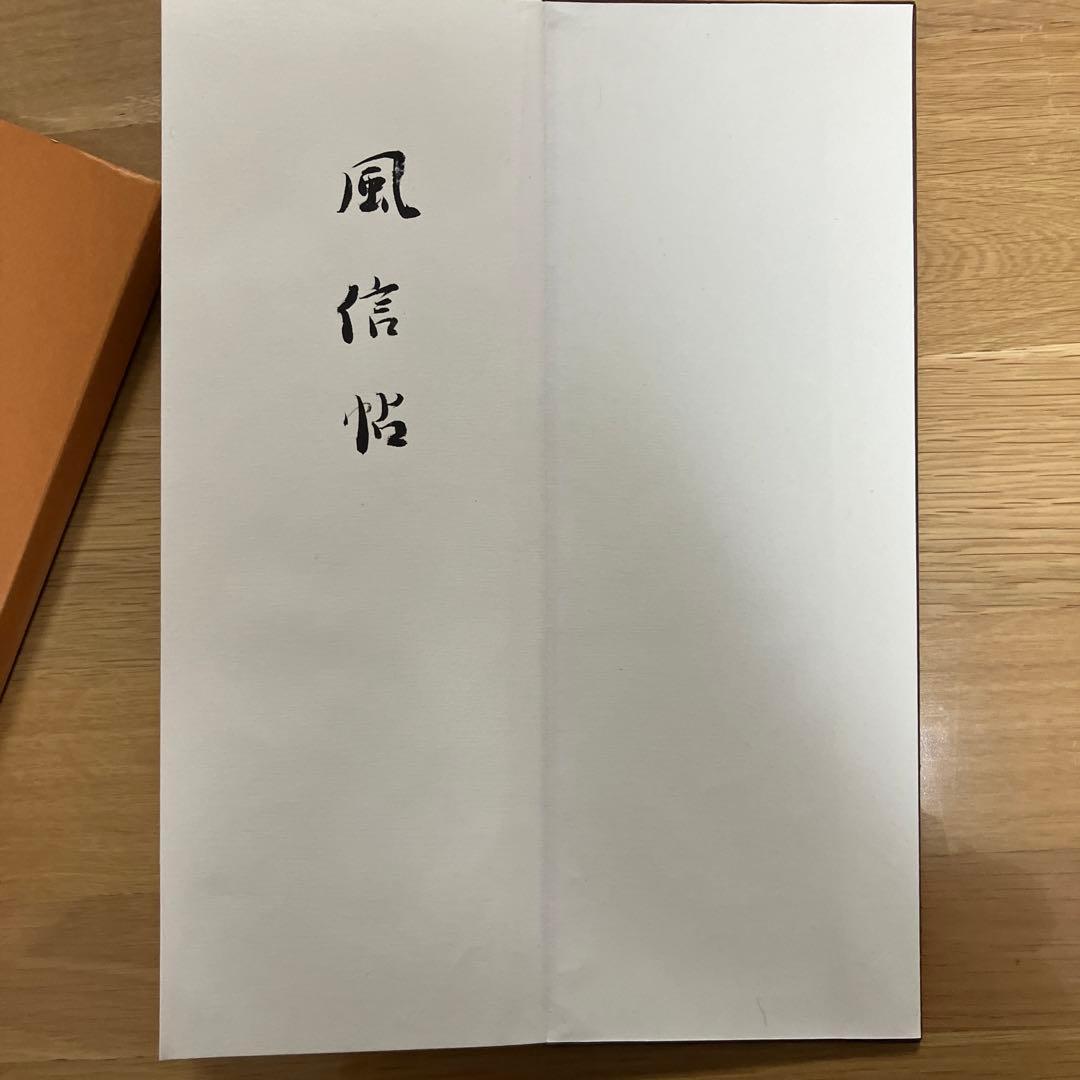 風信帖